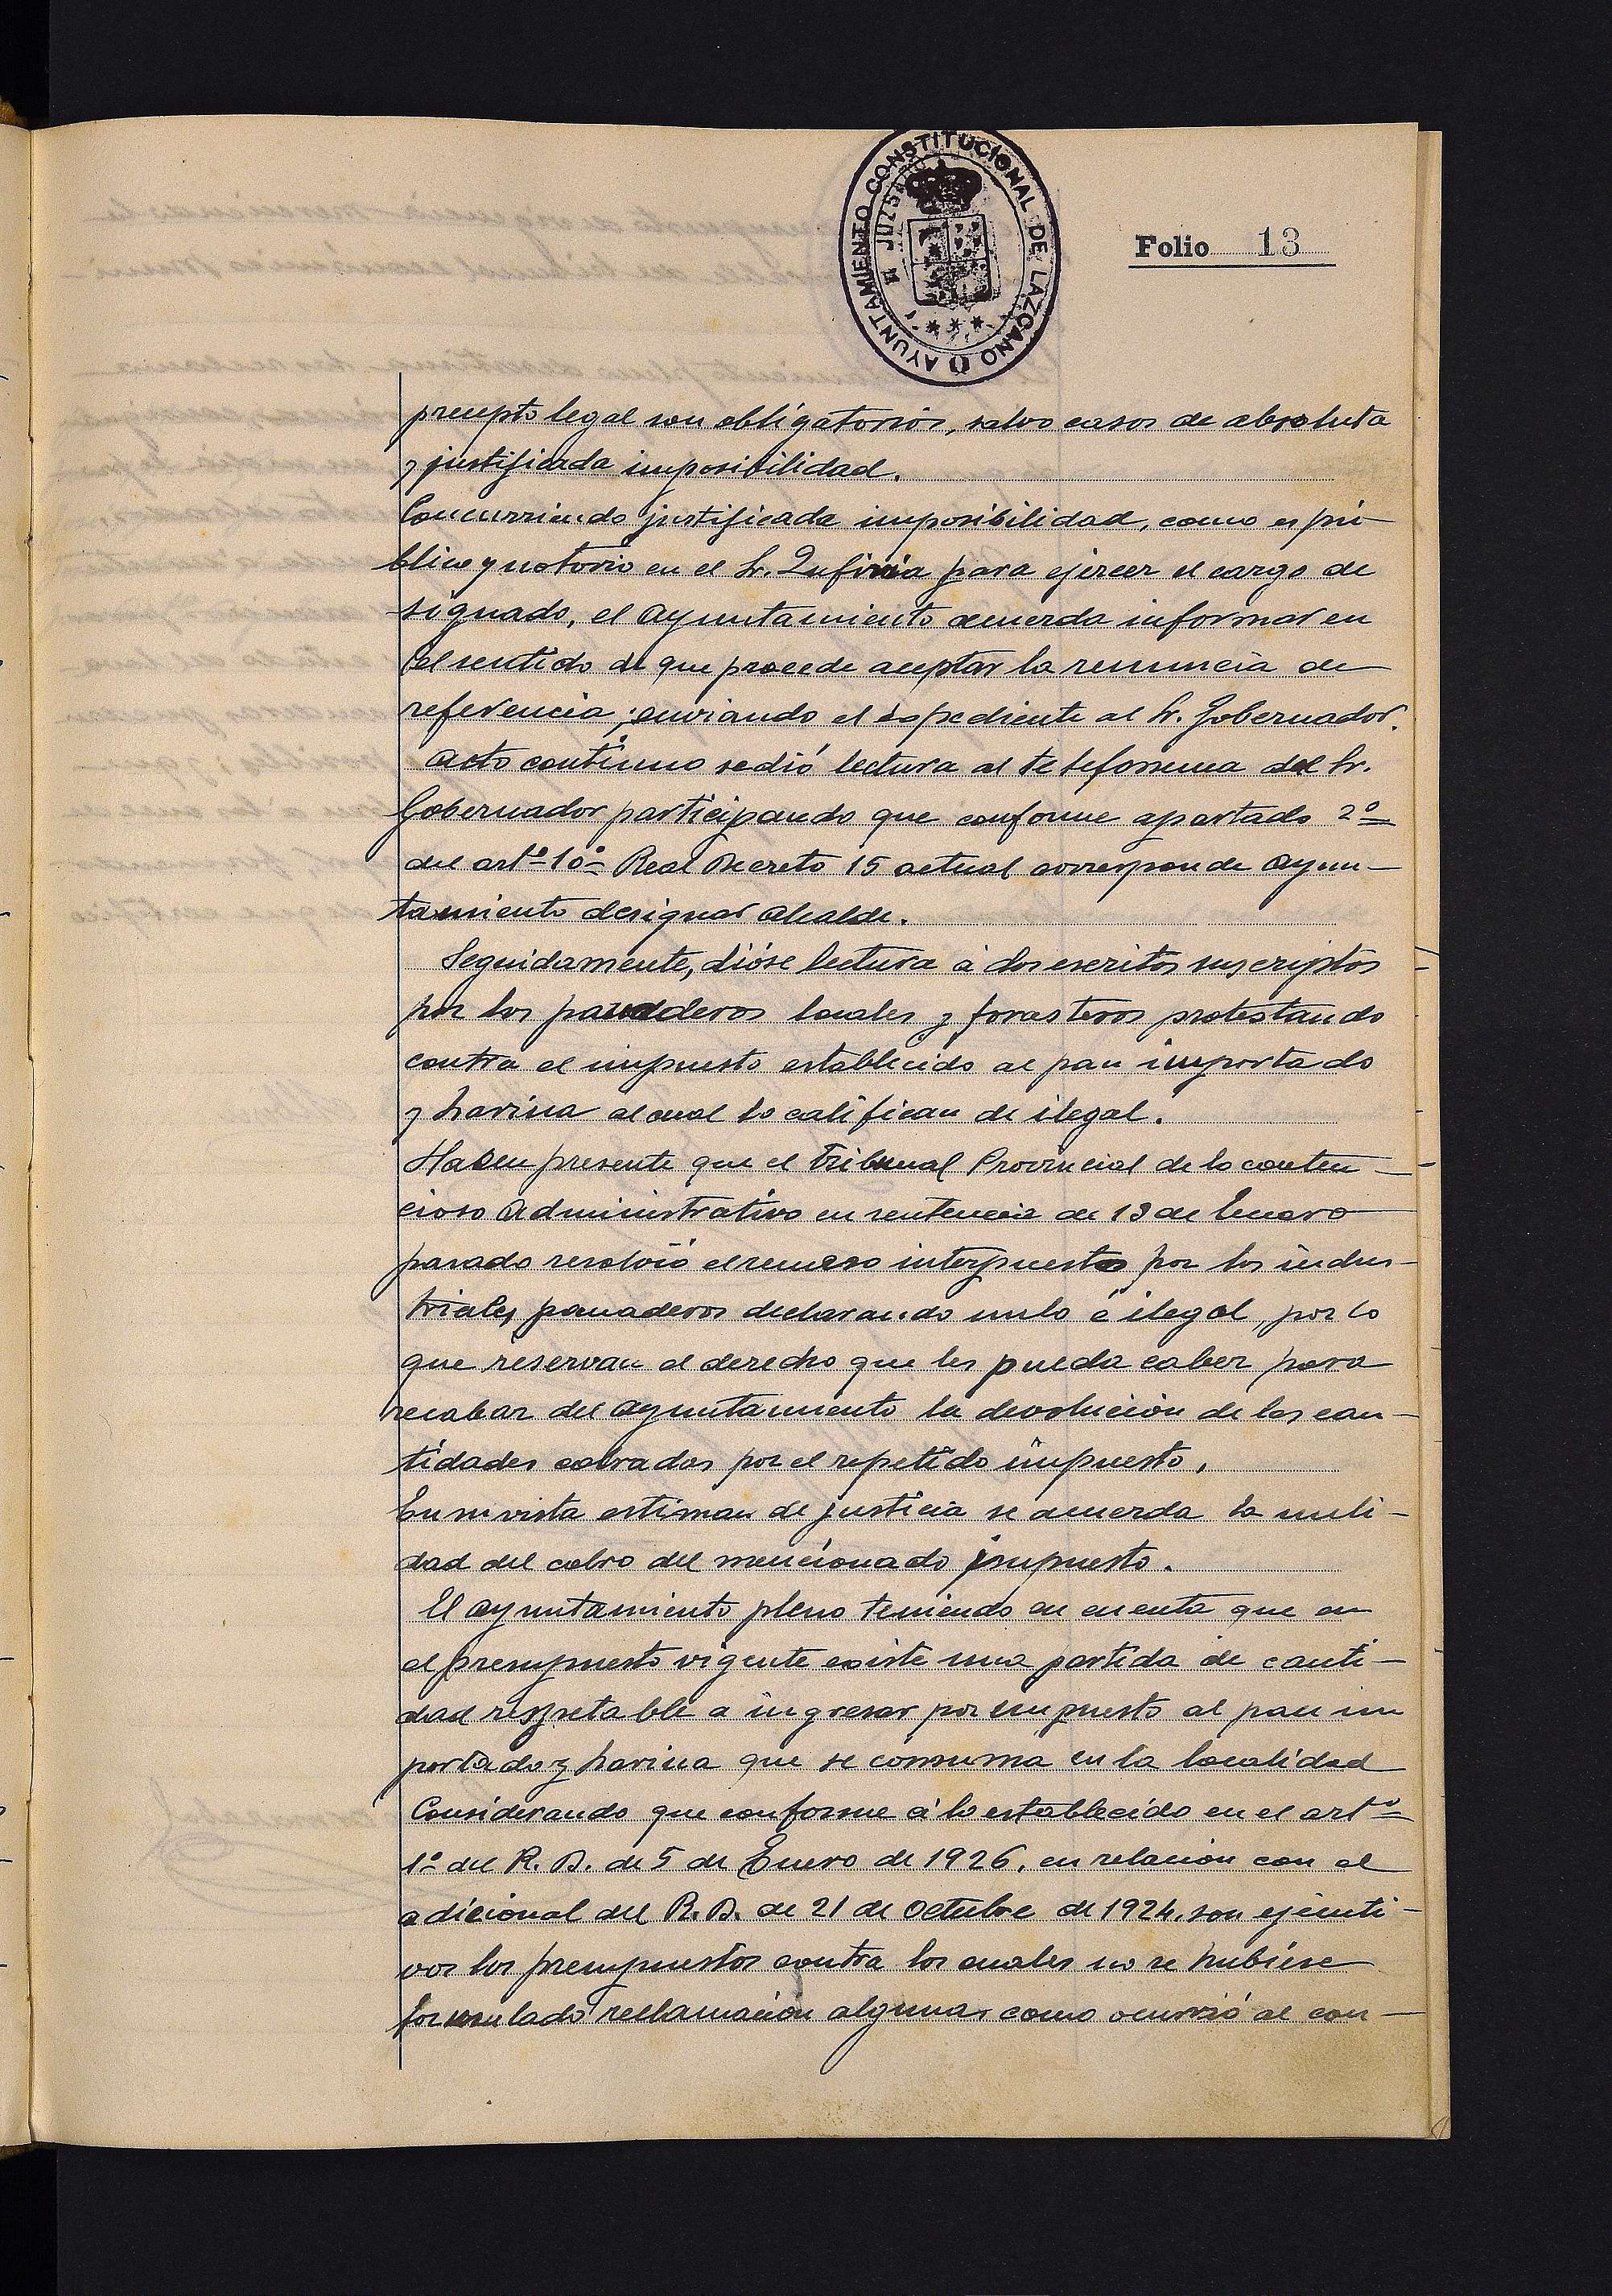 AYUNTAMIENTO CONSTITUCIONAL DE LAZCANO
Folio 13
precepto legal son obligatorios, salvo casos de absoluta
y justificada imposibilidad.
Concurriendo justificada imposibilidad, como es pú-
blico y notorio en el Sr. para ejercer el cargo de
signado, el Ayuntamiento acuerda informar en
el sentido de que procede aceptar la renuncia de
referencia, enviando el expediente al Sr. Gobernador.
Acto continuo se dió lectura al telefonema del Sr.
Gobernador participando que conforme apartado 2º
del artº 10º Real Decreto 15 actual corresponde Ayun-
tamiento designar Alcalde.
Seguidamente, dióse lectura á dos escritos suscriptos
por los panaderos locales y forasteros protestando
contra el impuesto establecido al pan importado
y harina al cual lo califican de ilegal.
Hacen presente que el Tribunal Provincial de lo conten-
cioso Administrativo en sentencia de 13 de Enero
pasado resolvió el recurso interpuesto por los indus-
triales panaderos declarando nulo é ilegal, por lo
que reservan el derecho que les pueda caber para
recabar del Ayuntamiento la devolución de las can-
tidades cobradas por el repetido impuesto.
En su vista estiman de justicia se acuerda la nuli-
dad del cobro del mencionado impuesto.
El Ayuntamiento pleno teniendo en cuenta que en
el presupuesto vigente existe una partida de canti-
dad respetable a ingresar por impuesto al pan im
portado y harina que se consuma en la localidad
Considerando que conforme á lo establecido en el artº
1º del R. D. de 5 de Enero de 1926, en relación con el
adicional del R. D. de 21 de Octubre de 1924, son ejecuti-
vos los presupuestos contra los cuales no se hubiese
formulado reclamación alguna, como ocurrió al con-